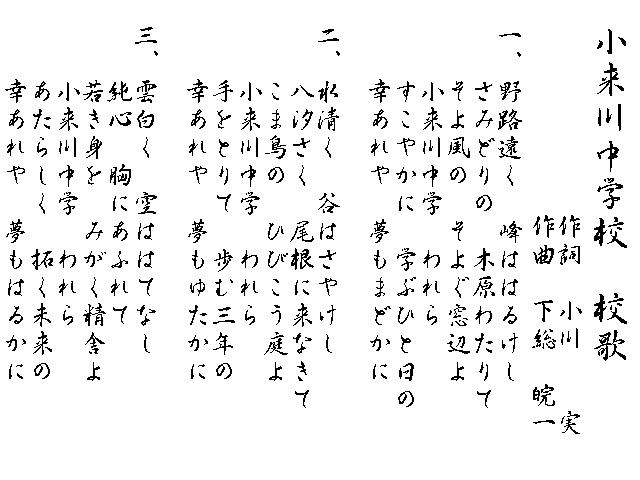 小来川中学校 校歌
作詞 小川 実
作曲 下総 皖一
一、
野路遠く 峰ははるけし
さみどりの 木原わたりて
そよ風の そよぐ窓辺よ
小来川中学 われら
すこやかに 学ぶひと日の
幸あれや 夢もまどかに
二、
水清く 谷はさやけし
八汐さく 尾根に来なきて
こま鳥の ひびこう庭よ
小来川中学 われら
手をとりて 歩む三年の
幸あれや 夢もゆたかに
三、
雲白く 空ははてなし
純心 胸にあふれて
若き身を みがく精舎よ
小来川中学 われら
あたらしく 拓く未来の
幸あれや 夢もはるかに